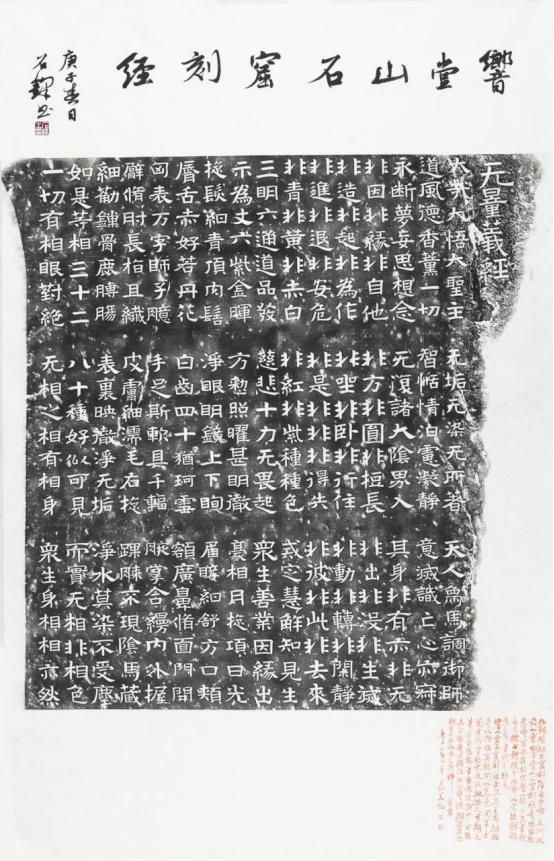 響堂山石窟刻經
庚子春日
无量義經
大哉大悟大聖主 无垢无染无所著 天人象馬調御師
道風德香薰一切 智恬情泊慮凝靜 意滅識亡心亦寂
永断夢妄思想念 无復諸大陰界入 其身非有亦非无
非因非緣非自他 非方非圓非短長 非出非没非生滅
非造非起非為作 非坐非卧非行住 非動非轉非閑靜
非進非退非安危 非是非非非得失 非彼非此非去來
非青非黃非赤白 非紅非紫種種色 戒定慧解知見生
三明六通道品發 慈悲十力无畏起 衆生善業因緣出
示為丈六紫金暉 方整照曜甚明徹 豪相月旋項日光
旋髮紺青頂肉髻 淨眼明鏡上下眴 眉睫紺舒方口頰
脣舌赤好若丹花 白齒四十猶珂雪 額廣鼻脩面門開
匈表万字師子臆 手足軟具千輻 腋掌合縵內外握
臂脩肘長指且纖 皮膚細濡毛右旋 踝膝不現陰馬藏
細筋鏁骨鹿膊腸 表裏映徹淨无垢 淨水莫染不受塵
如是等相三十二 八十種好似可見 而實无相非相色
一切有相眼對絕 无相之相有相身 衆生身相相亦然